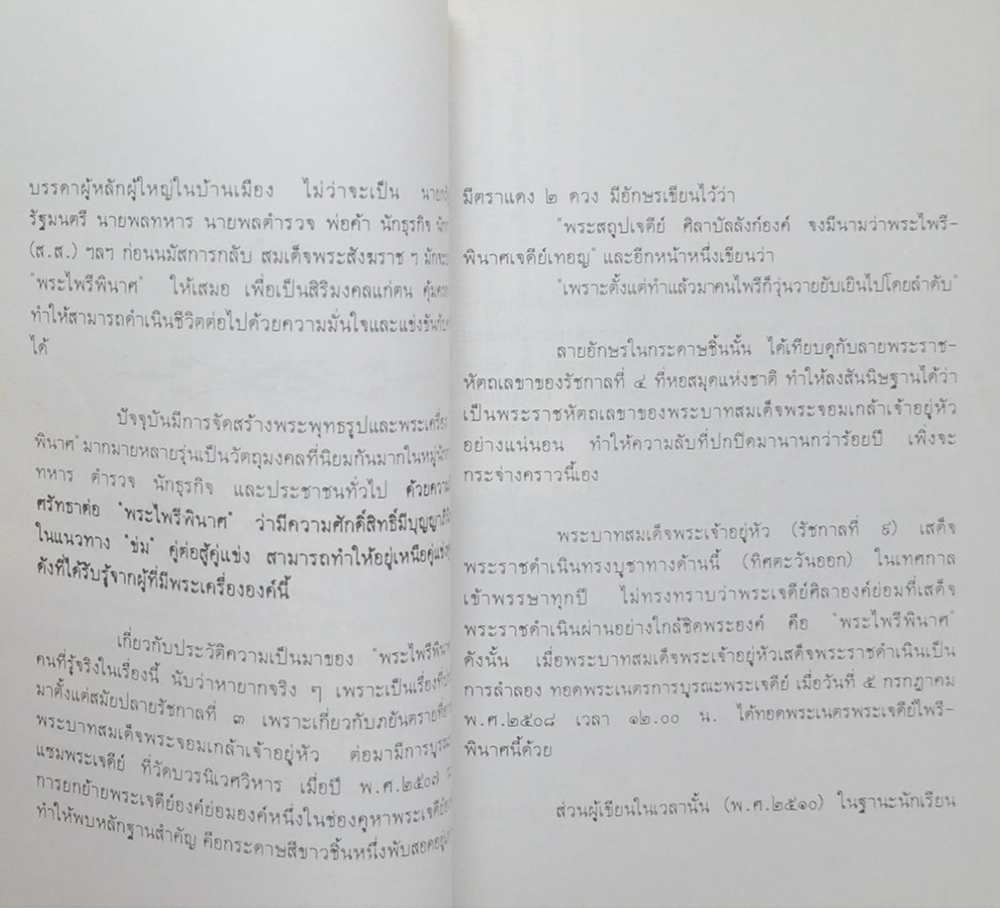 บรรดาผู้หลักผู้ใหญ่ในบ้านเมือง ไม่ว่าจะเป็น
รัฐมนตรี นายพลทหาร นายพลตำรวจ พ่อค้า นักธุรกิจ
(ส.ส.) ฯลฯ ก่อนนมัสการกลับ สมเด็จพระสังฆราช ฯ
"พระไพรีพินาศ" ให้เสมอ เพื่อเป็นสิริมงคลแก่ตน
ทำให้สามารถดำเนินชีวิตต่อไปด้วยความมั่นใจและแข่งขันกับ
ได้
ปัจจุบันมีการจัดสร้างพระพุทธรูปและพระเครื่อง
พินาศ" มากมายหลายรุ่นเป็นวัตถุมงคลที่นิยมกันมากในหมู่
ทหาร ตำรวจ นักธุรกิจ และประชาชนทั่วไป ด้วยความ
ศรัทธาต่อ "พระไพรีพินาศ" ว่ามีความศักดิ์สิทธิ์มี
ในแนวทาง "ข่ม" คู่ต่อสู้คู่แข่ง สามารถทำให้อยู่เหนือคู่แข่ง
ดังที่ได้รับรู้จากผู้ที่มีพระเครื่ององค์นี้
เกี่ยวกับประวัติความเป็นมาของ "พระไพรีพินาศ
คนที่รู้จริงในเรื่องนี้ นับว่าหายากจริง ๆ เพราะเป็นเรื่องที่
มาตั้งแต่สมัยปลายรัชกาลที่ ๓ เพราะเกี่ยวกับภยันตราย
พระบาทสมเด็จพระจอมเกล้าเจ้าอยู่หัว ต่อมามีการบูรณะ
แซมพระเจดีย์ ที่วัดบวรนิเวศวิหาร เมื่อปี พ.ศ.๒๕๐๗
การยกย้ายพระเจดีย์องค์ย่อมองค์หนึ่งในช่องคูหาพระเจดีย์
ทำให้พบหลักฐานสำคัญ คือกระดาษสีขาวชิ้นหนึ่งพับสอดอยู่
มีตราแดง ๒ ดวง มีอักษรเขียนไว้ว่า
"พระสถูปเจดีย์ ศิลาบัลลังก์องค์ จงมีนามว่าพระไพรี-
พินาศเจดีย์เทอญ" และอีกหน้าหนึ่งเขียนว่า
"เพราะตั้งแต่ทำแล้วมาคนไพรีก็วุ่นวายยับเยินไปโดยลำดับ"
ลายอักษรในกระดาษชิ้นนั้น ได้เทียบดูกับลายพระราช-
หัตถเลขาของรัชกาลที่ ๔ ที่หอสมุดแห่งชาติ ทำให้ลงสันนิษฐานได้ว่า
เป็นพระราชหัตถเลขาของพระบาทสมเด็จพระจอมเกล้าเจ้าอยู่หัว
อย่างแน่นอน ทำให้ความลับที่ปกปิดมานานกว่าร้อยปี เพิ่งจะ
กระจ่างคราวนี้เอง
พระบาทสมเด็จพระเจ้าอยู่หัว (รัชกาลที่ ๙) เสด็จ
พระราชดำเนินทรงบูชาทางด้านนี้ (ทิศตะวันออก) ในเทศกาล
เข้าพรรษาทุกปี ไม่ทรงทราบว่าพระเจดีย์ศิลาองค์ย่อมที่เสด็จ
พระราชดำเนินผ่านอย่างใกล้ชิดพระองค์ คือ "พระไพรีพินาศ"
ดังนั้น เมื่อพระบาทสมเด็จพระเจ้าอยู่หัวเสด็จพระราชดำเนินเป็น
การลำลอง ทอดพระเนตรการบูรณะพระเจดีย์ เมื่อวันที่ ๕ กรกฎาคม
พ.ศ.๒๕๐๘ เวลา ๑๒.๐๐ น. ได้ทอดพระเนตรพระเจดีย์ไพรี-
พินาศนี้ด้วย
ส่วนผู้เขียนในเวลานั้น (พ.ศ.๒๕๑๐) ในฐานะนักเรียน